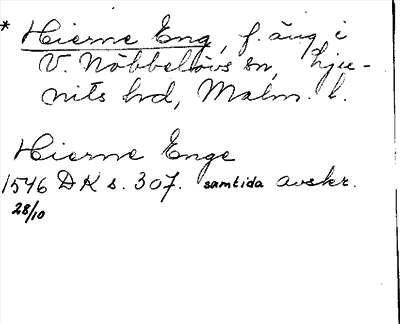 * Hierne Eng, f. äng i
V. Nöbbelövs sn, Lju-
nits hd, Malm. l.
Hierne Enge
1546 DK s. 307. samtida avskr.
28/10